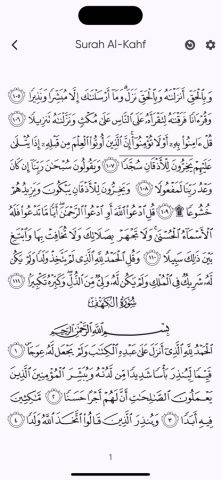 Surah Al-Kahf
وَبِالْحَقِّ أَنزَلْنَاهُ وَبِالْحَقِّ نَزَلَ وَمَا أَرْسَلْنَاكَ إِلَّا مُبَشِّرًا وَنَذِيرًا ١٠٥
وَقُرْآنًا فَرَقْنَاهُ لِتَقْرَأَهُ عَلَى النَّاسِ عَلَىٰ مُكْثٍ وَنَزَّلْنَاهُ تَنزِيلًا ١٠٦
قُلْ آمِنُوا بِهِ أَوْ لَا تُؤْمِنُوا إِنَّ الَّذِينَ أُوتُوا الْعِلْمَ مِن قَبْلِهِ إِذَا يُتْلَىٰ
عَلَيْهِمْ يَخِرُّونَ لِلْأَذْقَانِ سُجَّدًا ١٠٧ وَيَقُولُونَ سُبْحَانَ رَبِّنَا إِن كَانَ
وَعْدُ رَبِّنَا لَمَفْعُولًا ١٠٨ وَيَخِرُّونَ لِلْأَذْقَانِ يَبْكُونَ وَيَزِيدُهُمْ
خُشُوعًا ۩ ١٠٩ قُلِ ادْعُوا اللَّهَ أَوِ ادْعُوا الرَّحْمَٰنَ أَيًّا مَّا تَدْعُوا فَلَهُ
الْأَسْمَاءُ الْحُسْنَىٰ وَلَا تَجْهَرْ بِصَلَاتِكَ وَلَا تُخَافِتْ بِهَا وَابْتَغِ
بَيْنَ ذَٰلِكَ سَبِيلًا ١١٠ وَقُلِ الْحَمْدُ لِلَّهِ الَّذِي لَمْ يَتَّخِذْ وَلَدًا وَلَمْ يَكُن
لَّهُ شَرِيكٌ فِي الْمُلْكِ وَلَمْ يَكُن لَّهُ وَلِيٌّ مِّنَ الذُّلِّ وَكَبِّرْهُ تَكْبِيرًا ١١١
سُورَةُ الْكَهْفِ
بِسْمِ اللَّهِ الرَّحْمَٰنِ الرَّحِيمِ
الْحَمْدُ لِلَّهِ الَّذِي أَنزَلَ عَلَىٰ عَبْدِهِ الْكِتَابَ وَلَمْ يَجْعَل لَّهُ عِوَجًا ١
قَيِّمًا لِّيُنذِرَ بَأْسًا شَدِيدًا مِّن لَّدُنْهُ وَيُبَشِّرَ الْمُؤْمِنِينَ الَّذِينَ
يَعْمَلُونَ الصَّالِحَاتِ أَنَّ لَهُمْ أَجْرًا حَسَنًا ٢ مَّاكِثِينَ
فِيهِ أَبَدًا ٣ وَيُنذِرَ الَّذِينَ قَالُوا اتَّخَذَ اللَّهُ وَلَدًا ٤
1